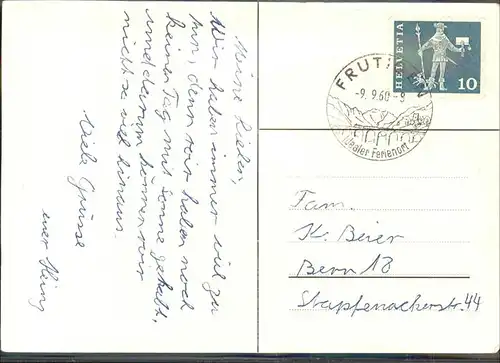 Meine Lieben,
Wir haben immer viel zu
tun, denn wir haben noch
keinen Tag mit Sonne gehabt,
und darum können wir
nicht so viel hinaus.
Viele Grüsse
euer
HELVETIA
10
FRUTIGEN
-9.9.60-8
Idealer Ferienort
Fam.
K. Beier
Bern 18
Stapfenackerstr. 44